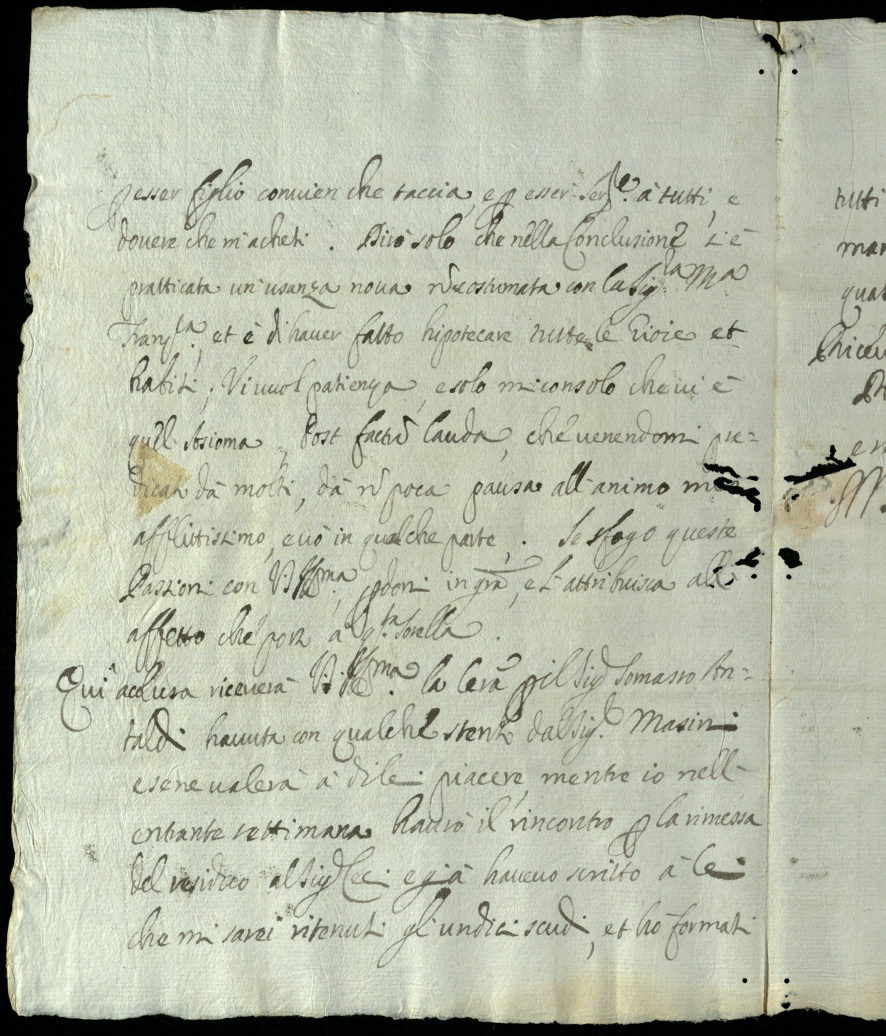 p esser figlio convien che taccia, e p esser Ser.re à tutti, e
dovere che m'acheti. Dirò solo che nella Conclusione s'è
pratticata un'usanza nova nō costumata con la Sig.ra Ma
Fran.ca, et è di haver fatto hipotecare tutte le Gioie et
habiti; Vi vuol patienza, e solo mi consolo che vi è
quel Asioma, Post factū lauda, che venendomi pre=
dicat da molti, dà nō poca pausa all'animo m
afflittissimo, e vò in qualche parte. Se sfogo queste
Passioni con V.S. Ill.ma, pdoni in grā, e l'attribuisca all
affetto che port à q.ta sorella.
Qui acclusa riceverà V.S. Ill.ma la lerā p il Sig.r Tomasso An=
taldi havuta con qualche stento dal Sig.r Masini
e se ne valerà à di lei piacere, mentre io nell
entrante settimana havrò il rincontro p la rimessa
del residuo al Sig.r e già havevo scritto à lei
che mi sarei ritenuti gli undici scudi, et hò formati
tutti
mar
quat